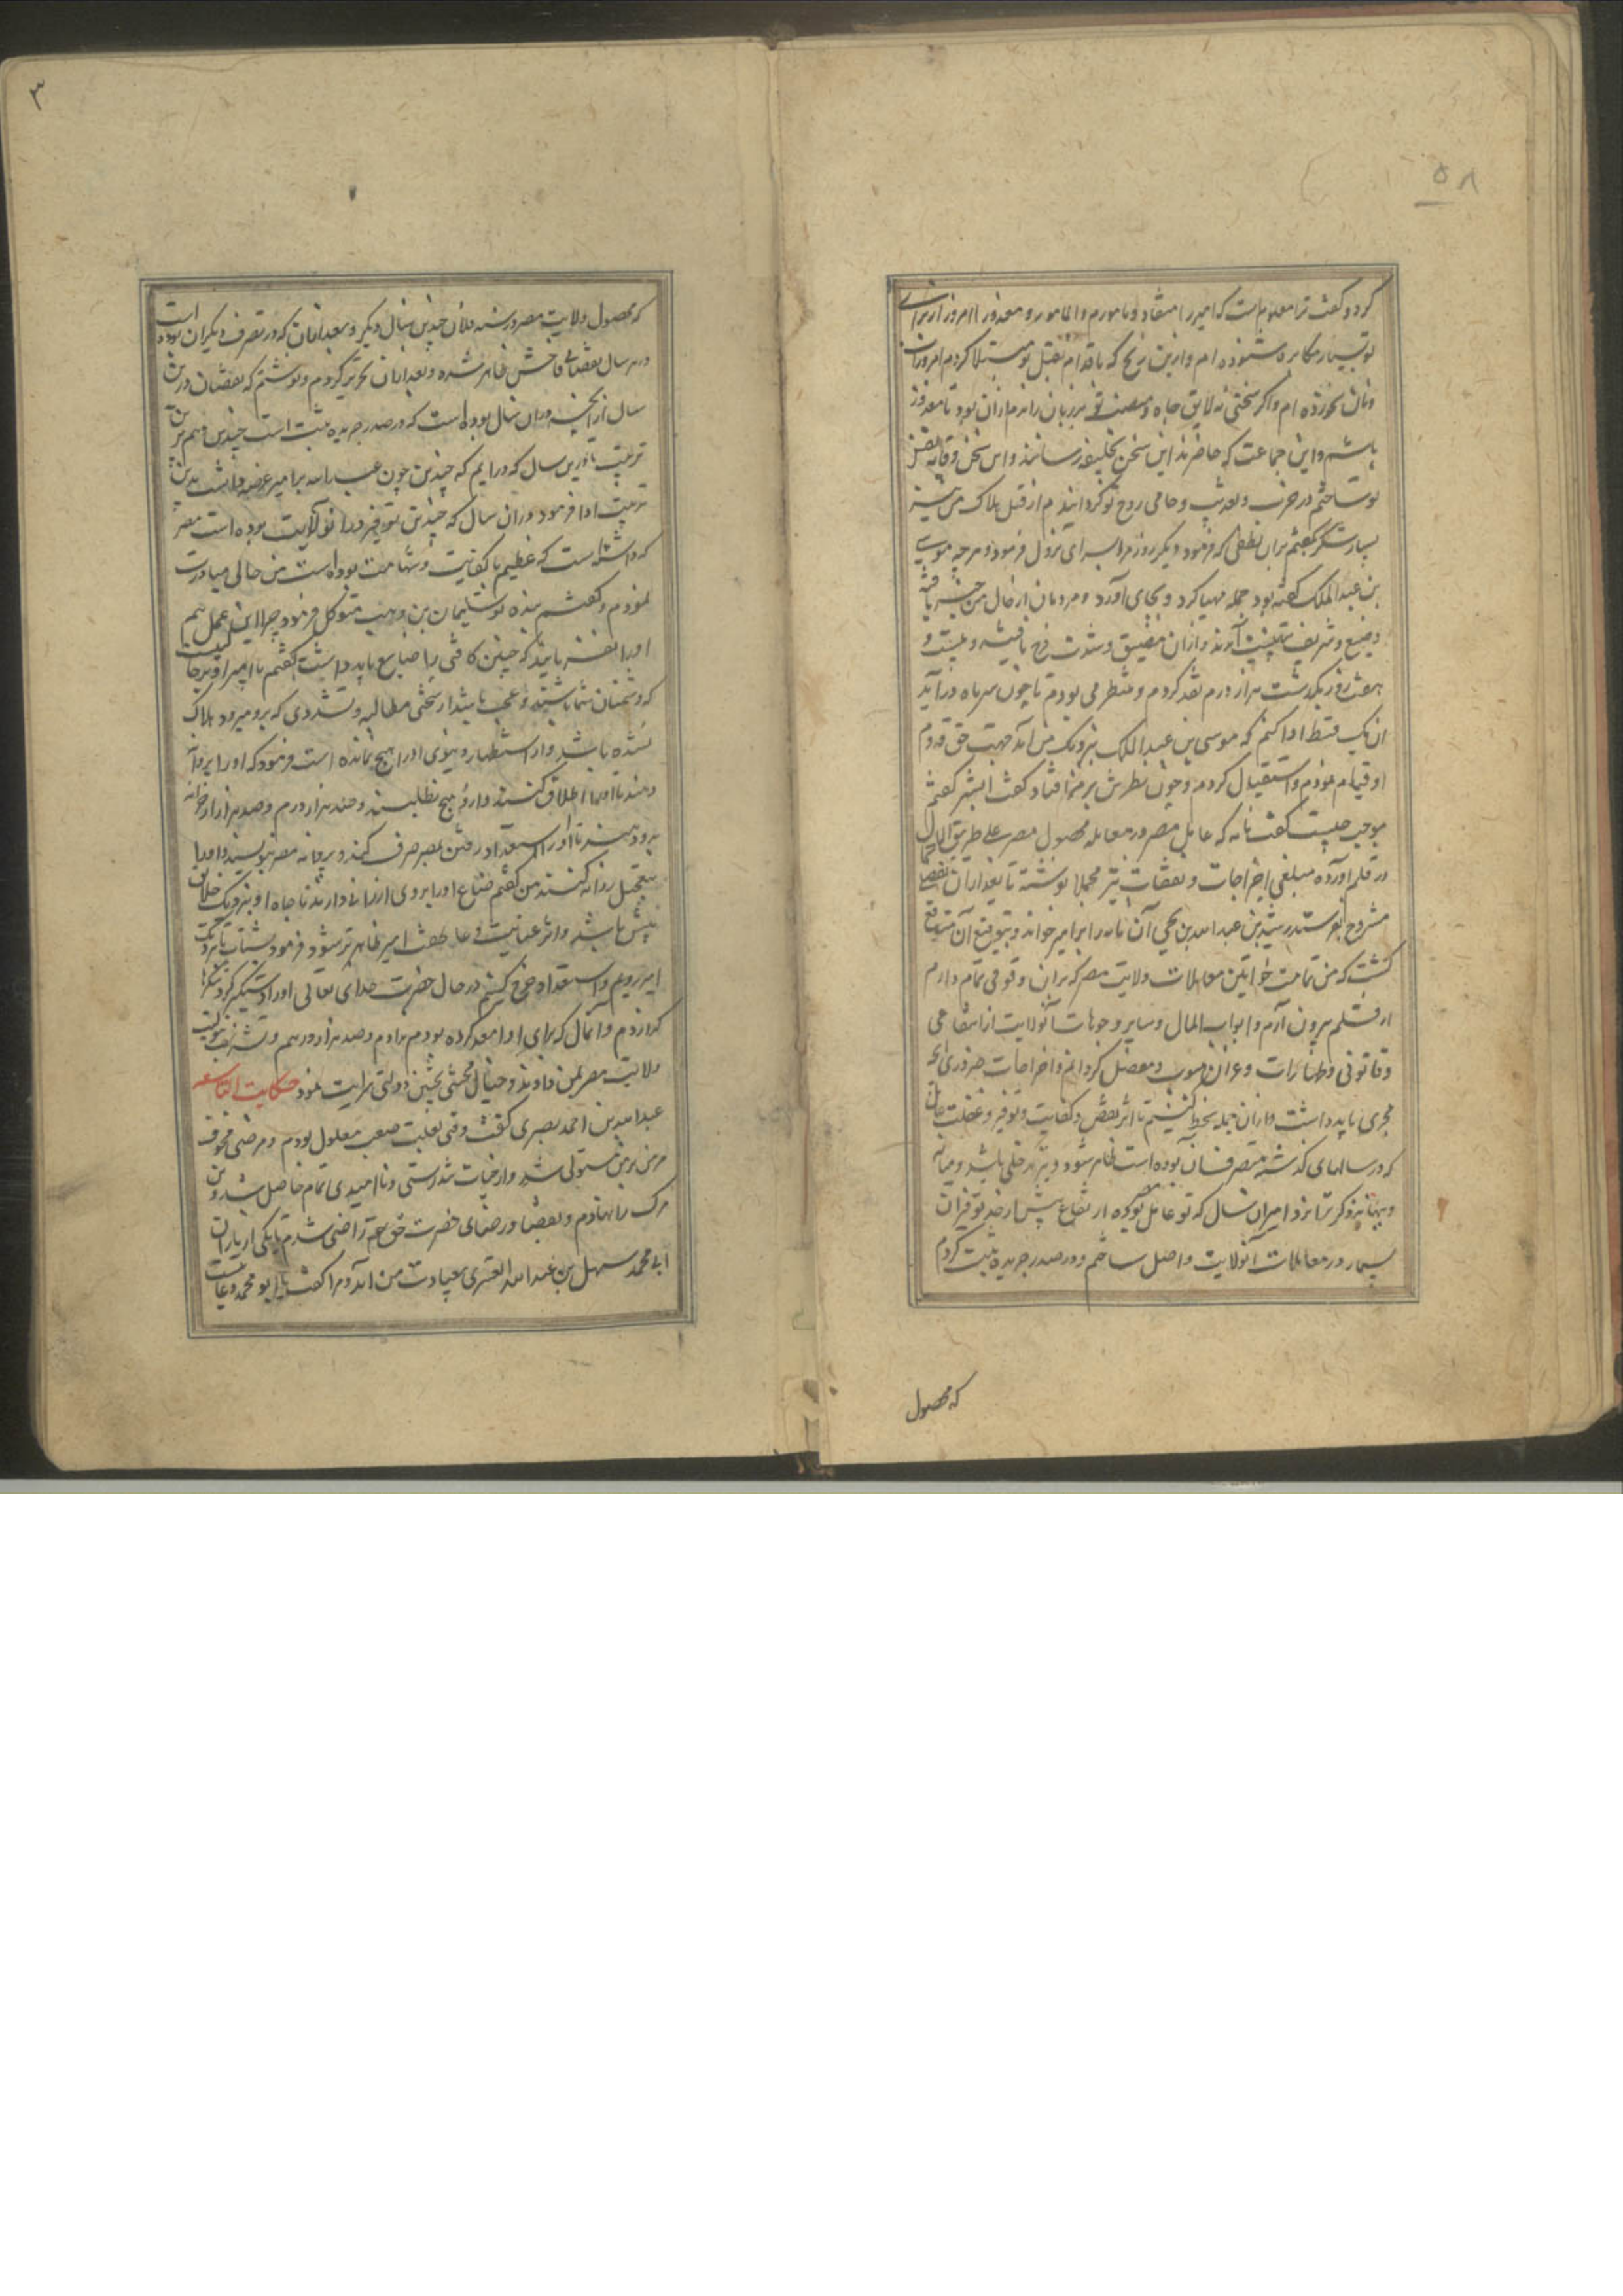 ۵۸
کرد و گفت ترا معلومست که امیر را منقاد و مامورم والمامور معذور امروز از برای
تو بسیار مکابره شنوده ام و ازین رنج که باقدام بقتل تو مبتلا کردم امروز
ونان نخورده ام واکر سخنی نه لایق جاه و منصب تو بر زبان راندم ازان بود تا معذور
باشم و این جماعت که حاضرند این سخن بخلیفه رسانند و این سخن وقایه نفس
تو ساختم در ضرب و تعذیب و حامی روح تو کردانیدم از قتل و هلاک من نیز
بسیار شکر گفتم بران لطفی که فرمود دیگر روز مرا بسرای نزول فرمود و هرچه موسی
بن عبد الملک گفته بود جمله مهیا کرد و بجای آورد و مردمان از حال من خبر یافته
وضیع و شریف بتهنیت آمدند و ازان مضیق و شدت فرج یافته و بیست و
هفت روز بگذشت هزار درم نقد کردم و منتظر می بودم تا چون سر ماه درآید
آن یک قسط ادا کنم که موسی بن عبد الملک نزدیک من آمد جهت حق قدوم
او قیام نمودم و استقبال کردم و چون نظرش بر من افتاد گفت ابشر گفتم
موجب چیست گفت نامه که عامل مصر در معامله محصول مصر علی طریق الاجمال
در قلم آورده مبلغی اخراجات و نفقات نیز مجملا نوشته تا بعد ازان تفصیل
مشروح بفرستد رشید بن عبد الله بن یحیی آن نامه را بر امیر خواند و بتوقیع آن متوقع
گشت که من تمامت خواتین معاملات ولایت مصر که بران وقوفی تمام دارم
از قلم بیرون آرم و ابواب المال و سایر وجوهات آنولایت از مقاسمی
و قانونی و طیارات و غیران مبوب و مفصل کردانم و اخراجات ضروری که
مجری باید داشت ازان جمله بخط کشم تا اثر نقص و کفایت و توفیر و غفلت عامل
که در سالهای گذشته متصرف آن بوده است ظاهر شود
نزد امیر آن سال که تو عامل بوده ارتفاع بیش از حد توفیران
بسیار در معاملات آنولایت واصل ساختم و در صدر جریده ثبت کردم
که محصول
۳
که محصول ولایت مصر در سنه فلان چندین سال دیگر و بعد ازان که در تصرف دیگران بوده است
در هر سال نقصانی فاحش ظاهر شده و بعد ازان تحریر کردم و نوشتم که نقصان درین
سال از آنچه دران سال بوده است که در صدر جریده ثبت است چندین و هم برین
ترتیب تا درین سال که درایم که چندین چون عبد الله بر امیر عرضه داشت بدین
ترتیب ادا فرمود دران سال که چندین توفیر دران ولایت بوده است مصر
که داشته است که عظیم با کفایت و شهامت بوده است من حالی مبادرت
نمودم و گفتم بنده تو سلیمان بن وهب متوکل فرمود چرا این عمل هم
او را نفرمایند که چنین کافی را ضایع باید داشت گفتم یا امیر او کجاست
که دشمنان شما باشند و عجب باشد از سختی مطالبه و تشددی که برو میرود هلاک
نشده باشد و از استظهار دنیوی او را هیچ نمانده است فرمود که او را بر ما آ
رند تا او را اطلاق کنند و ازو هیچ نطلبند و صد هزار درم وصد هزار از خزانه
بدو دهند تا او را استعداد رفتن بمصر صرف کند و پروانه مصر بنویسند و او را
بتعجیل روانه کنند من گفتم ضیاع او را بروی ارزانی دارند تا جاه او بنزدیک خلایق
بیش باشد و اثر عنایت و عاطفت امیر ظاهرتر شود فرمود بشتاب تا نزدیک
امیر رویم و استعداد خرج کنیم در حال حضرت خدای تعالی او را دستگیر کرد شکر
گزاردم و آن مال که برای او معد کرده بودم بدادم و صد هزار درهم و تشریف تولیت
ولایت مصر بمن دادند و چنان محنتی بچنین دولتی سرایت نمود حکایت التاسعه
عبد الله بن احمد بصری گفت وقتی بعلت صعب معلول بودم و مرضی مخوف
مزمن بر من مستولی شد و از حیات و تندرستی ناامیدی تمام حاصل شد و تن
مرک را نهادم و بقضا و رضای حضرت حق راضی شدم تا یکی از یاران
ابی محمد سهل بن عبد الله التستری بعیادت من آمد و مرا گفت یا ابو محمد دعائیست